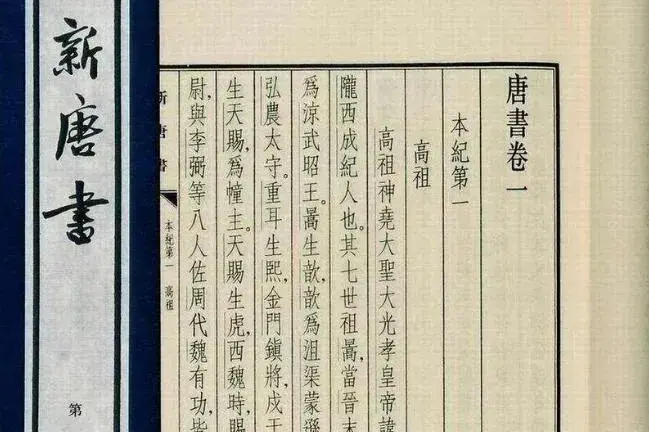 新唐書
第
唐書卷一
本紀第一
高祖
高祖神堯大聖大光孝皇帝諱
隴西成紀人也。其七世祖暠，當晉末，
爲涼武昭王。暠生歆，歆爲沮渠蒙遜
弘農太守。重耳生熙，金門鎮將，戍于
生天賜，爲幢主。天賜生虎，西魏時，賜
尉，與李弼等八人佐周代魏有功，皆
新唐書
本紀第一 高祖